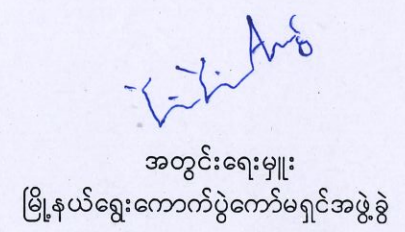 အတွင်းရေးမှူး
မြို့နယ်ရွေးကောက်ပွဲကော်မရှင်အဖွဲ့ခွဲ